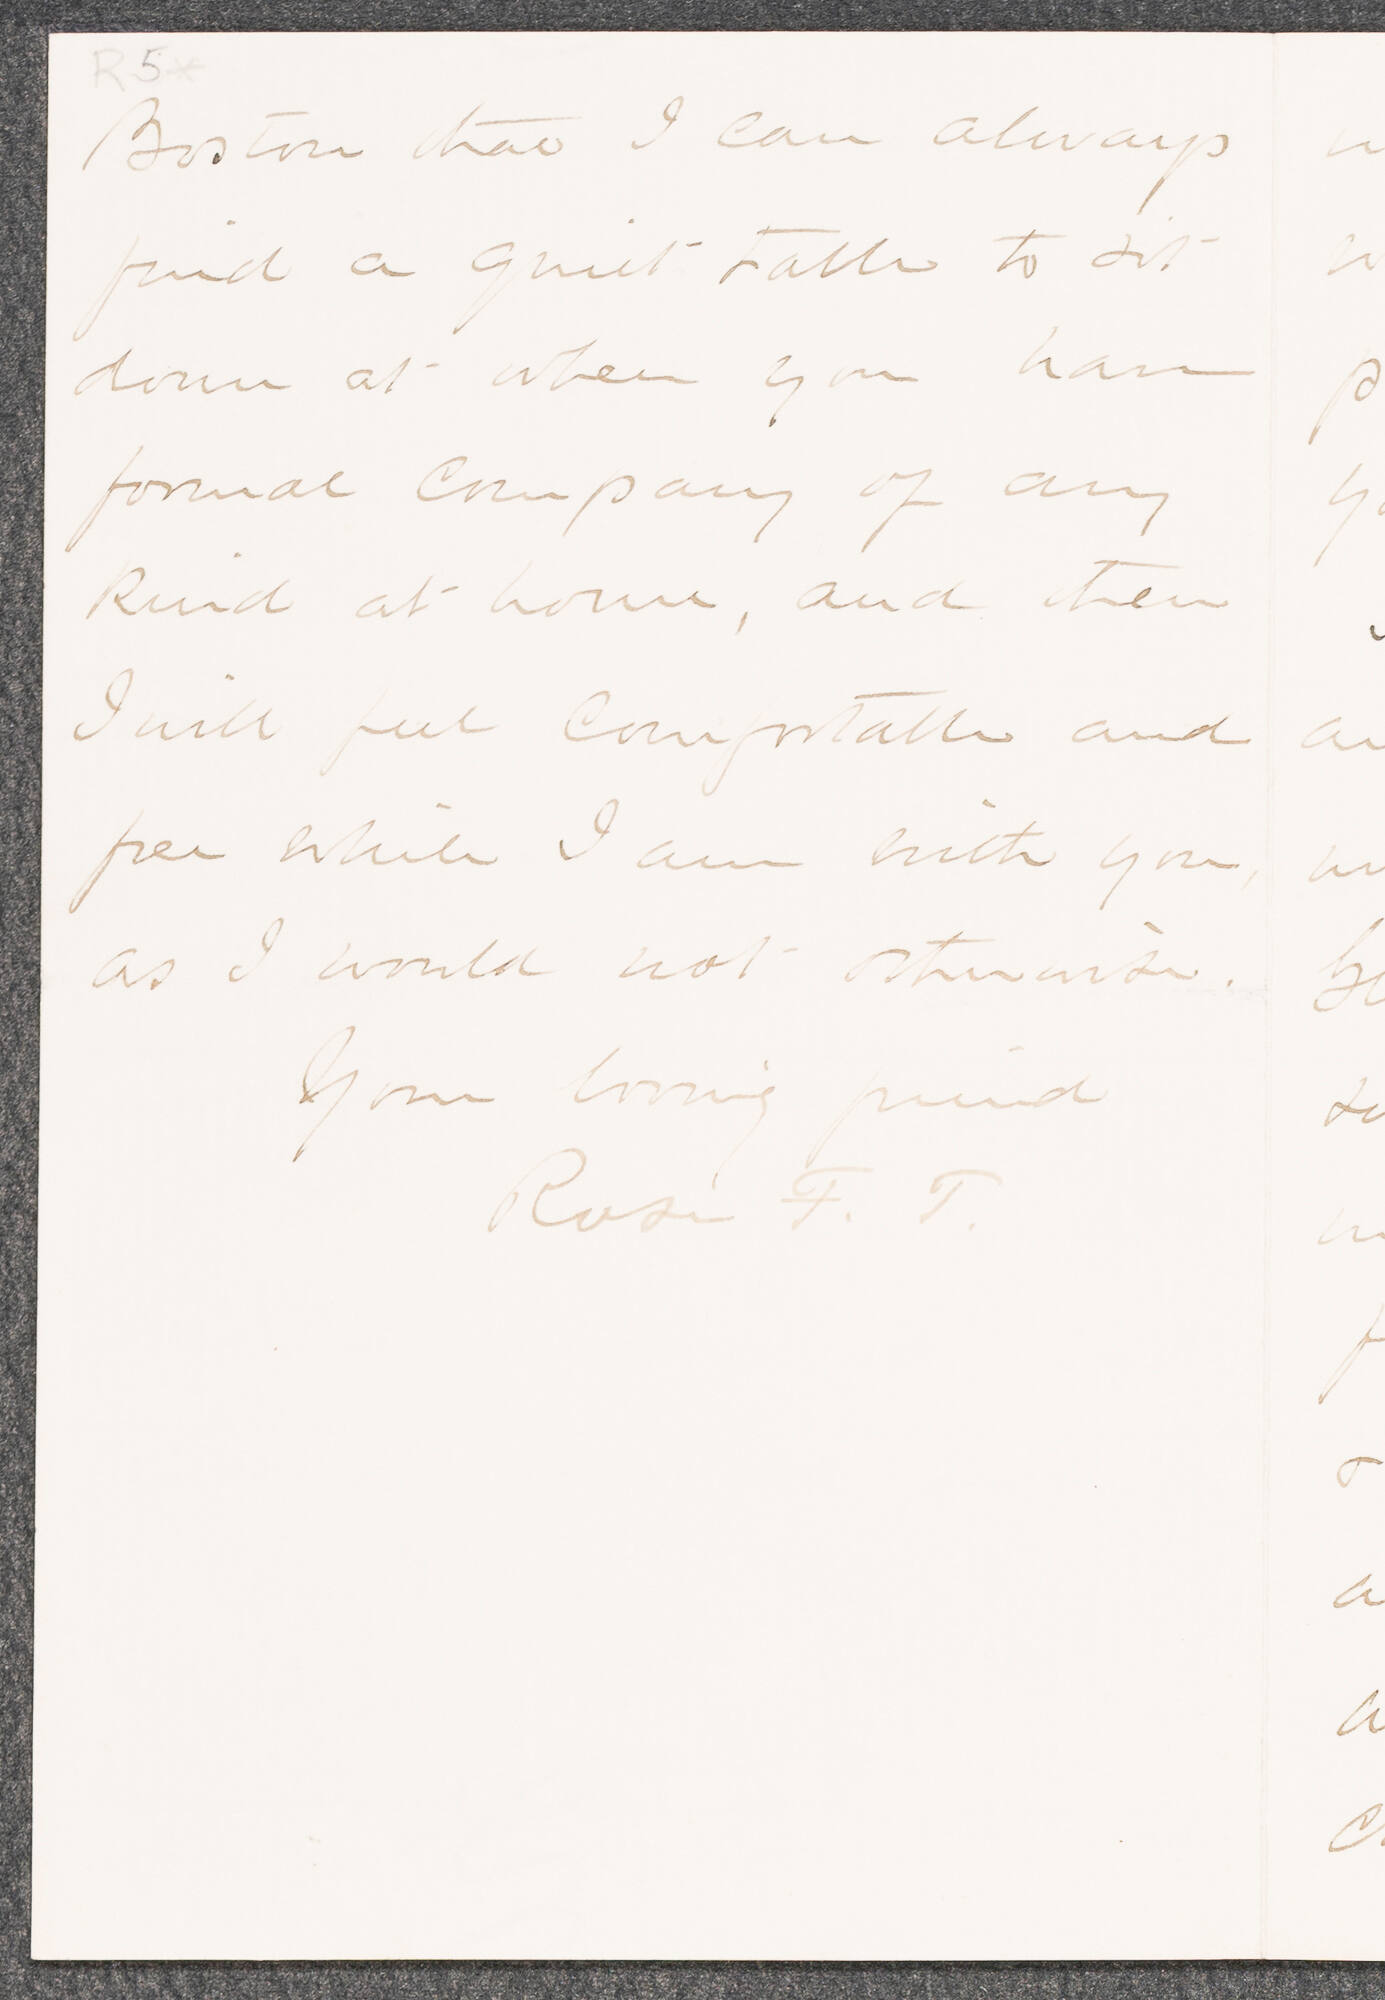 R5*
Boston that I can always
find a quiet table to sit
down at when you have
formal company of any
kind at home, and then
I will feel comfortable and
free while I am with you,
as I would not otherwise.
Your loving friend
Rose F. T.